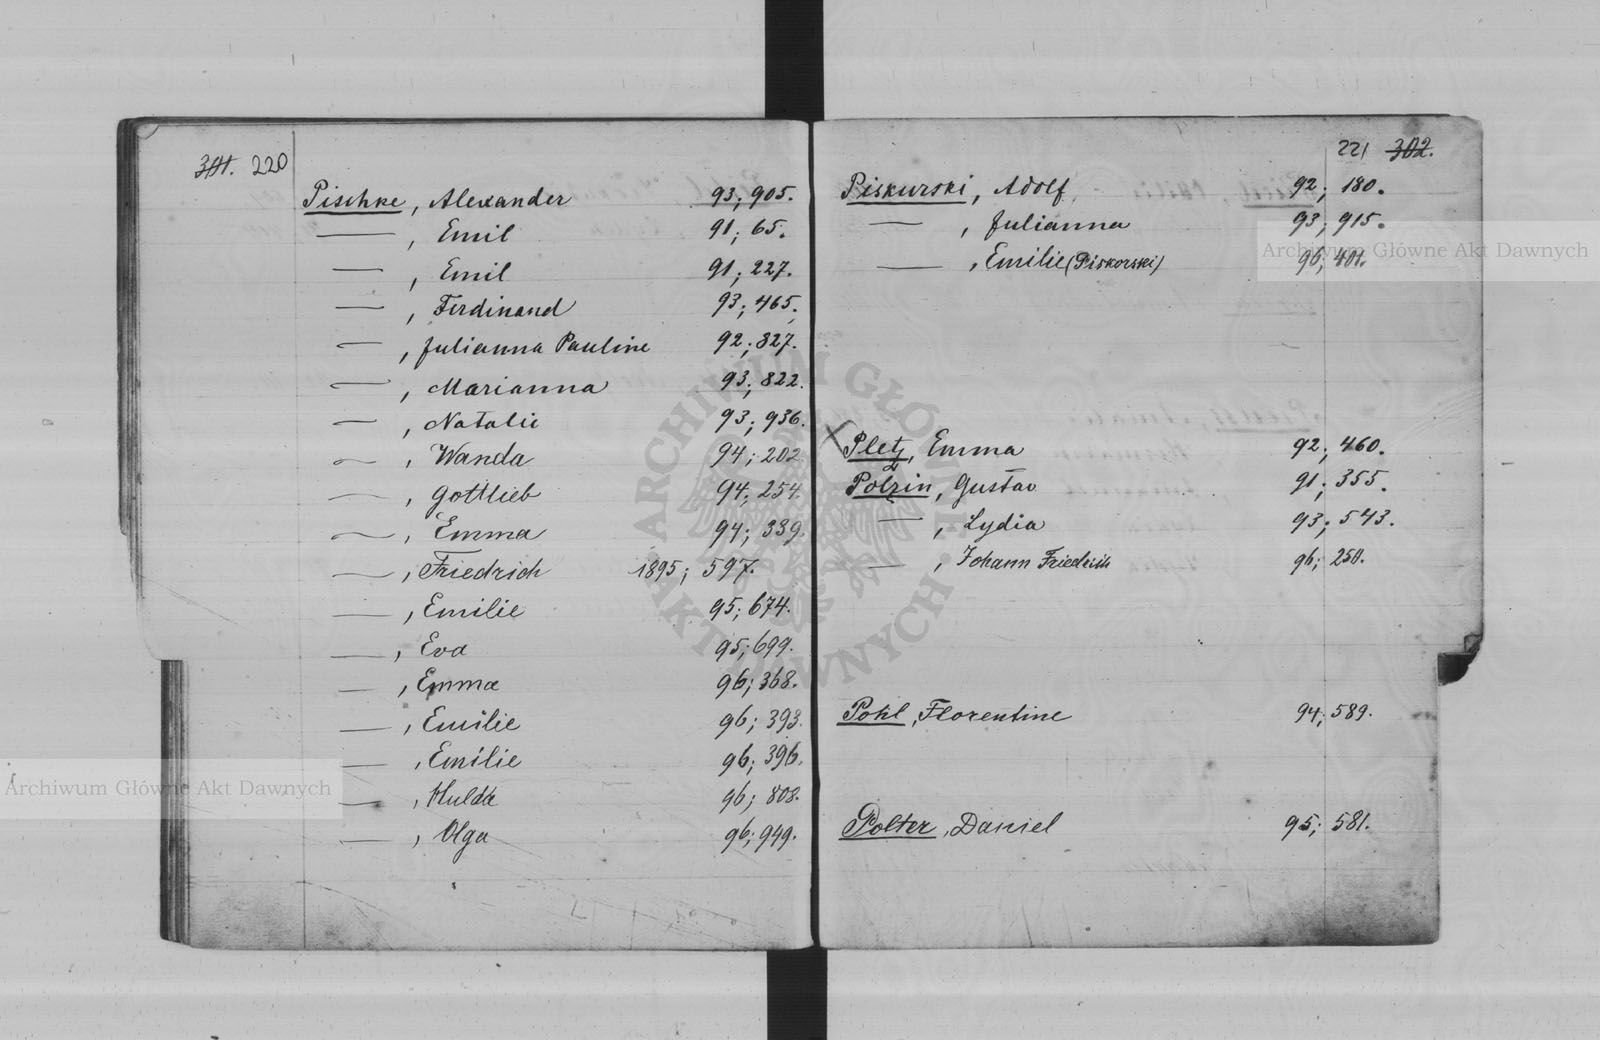 301. 220
Pischke, Alexander 93; 905.
—, Emil 91; 65.
—, Emil 91; 227.
—, Ferdinand 93; 465.
—, Julianna Pauline 92; 327.
—, Marianna 93; 822.
—, Natalie 93; 936.
—, Wanda 94; 202
—, Gottlieb 94; 254.
—, Emma 94; 339.
—, Friedrich 1895; 597.
—, Emilie 95; 674.
—, Eva 95; 699.
—, Emma 96; 368.
—, Emilie 96; 393.
—, Emilie 96; 396.
—, Hulda 96; 808.
—, Olga 96; 949.
221 302.
Piskurski, Adolf 92; 180.
—, Julianna 93; 915.
—, Emilie (Piskorski) 96; 401.
Pletz, Emma 92; 460.
Polzin, Gustav 91; 355.
—, Lydia 93; 543.
—, Johann Friedrich 96; 250.
Pohl, Florentine 94; 589.
Polter, Daniel 95; 581.
Archiwum Główne Akt Dawnych
Archiwum Główne Akt Dawnych
ARCHIWUM GŁÓWNE AKT DAWNYCH